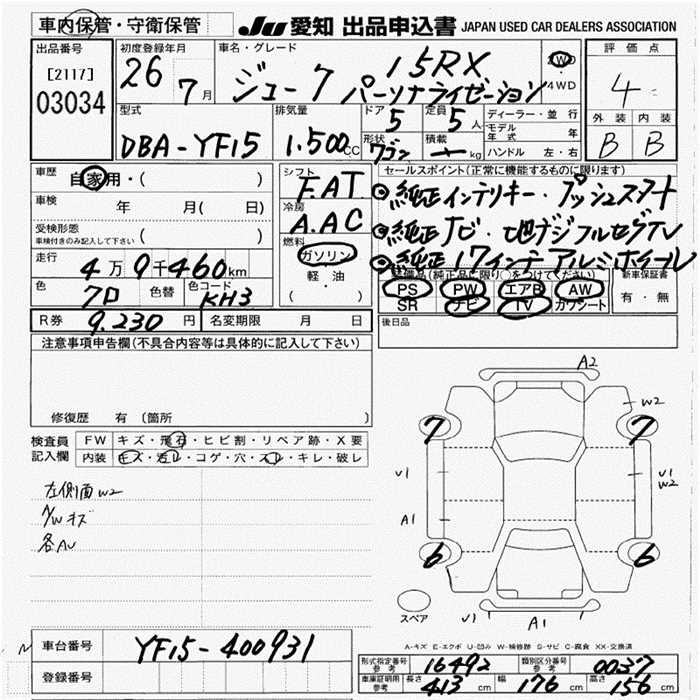 車内保管・守衛保管
JU 愛知 出品申込書 JAPAN USED CAR DEALERS ASSOCIATION
出品番号
[2117]
03034
初度登録年月
26 7月
車名・グレード
ジューク 15RX パーソナライゼーション
2WD
4WD
評価点
4
外装 内装
B B
型式
DBA-YF15
排気量
1.500cc
ドア
5
定員
5人
形状
ワゴン
積載
kg
ディーラー・並行
モデル年式 年
ハンドル 左・右
車歴
自家用・( )
車検 年 月( 日)
受検形態
車検付きのみ記入して下さい ( )
走行
4万9千460km
色
クロ
色替
色コード
KH3
シフト
F.AT
冷房
A.AC
燃料
ガソリン
軽・油
( )
セールスポイント(正常に機能するものに限ります)
純正インテリキー・プッシュスタート
純正ナビ・地デジフルセグTV
純正17インチアルミホイール
装備品(純正品に限り○をつけてください)
PS PW エアB AW
SR ナビ TV カワシート
新車保証書
有・無
R券 9.230円
名変期限 月 日
後日品
注意事項申告欄(不具合内容等は具体的に記入して下さい)
修復歴 有 〔箇所 〕
検査員記入欄
FW キズ・飛石・ヒビ割・リペア跡・X要
内装 キズ・汚レ・コゲ・穴・スレ・キレ・破レ
左側面W2
A/Wキズ
各AU
A2
W2
7 7
U1
U1
W2
A1
6 6
スペア
U1
A1
A-キズ E-エクボ U-凹み W-補修跡 S-サビ C-腐食 XX-交換済
車台番号
YF15-400931
登録番号
形式指定番号参考
16492
類別区分番号参考
0037
車庫証明用参考
長さ 413 cm
幅 176 cm
高さ 156 cm